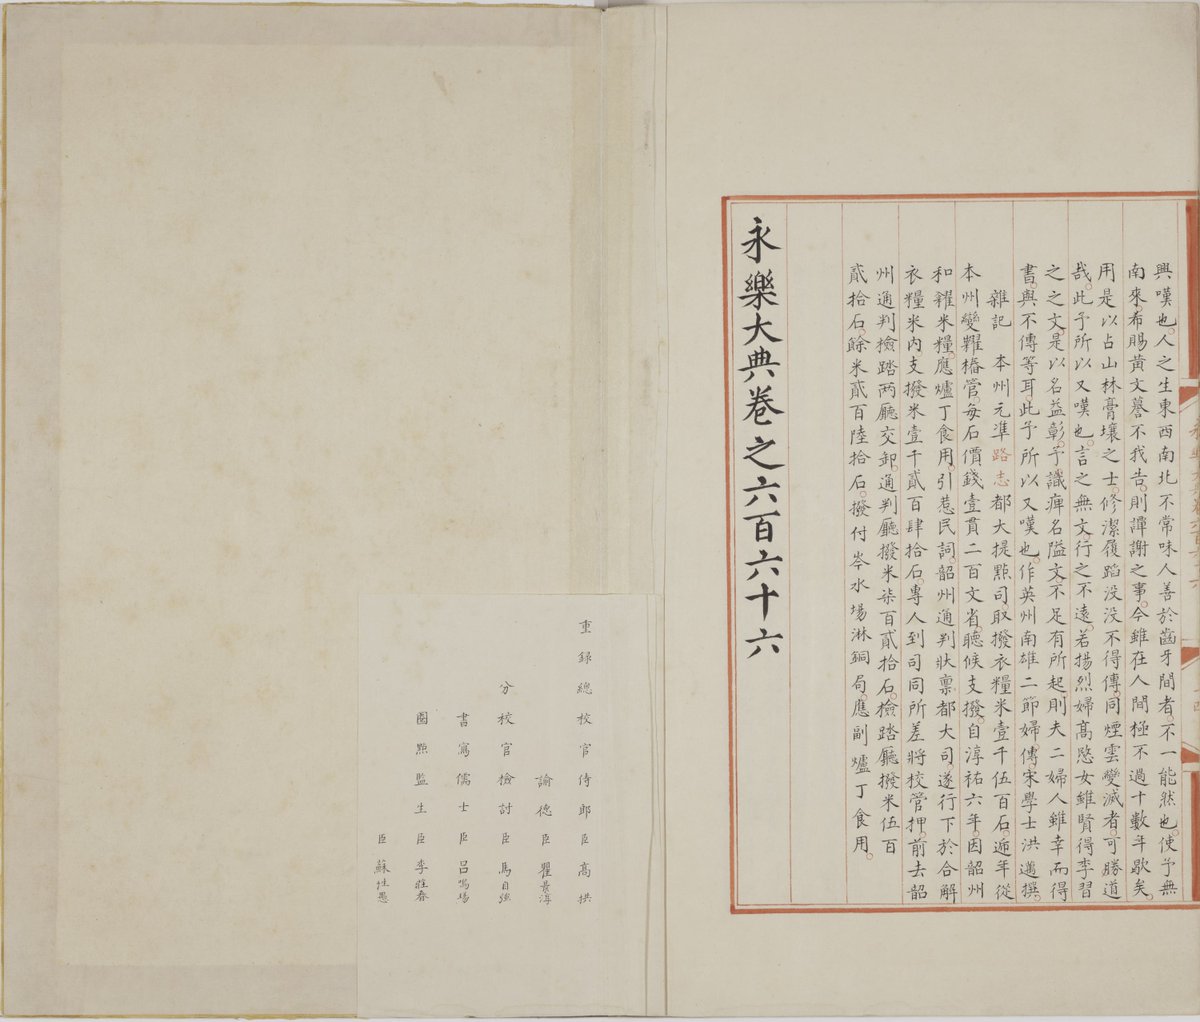 興嘆也人之生東西南北不常味人善於齒牙間者不一能然也使予無
南來希賜黃文蓦不我告則譚謝之事今雖在人間極不過十數年歇矣
用是以占山林膏壤之士修潔履蹈没没不得傳同煙雲變滅者可勝道
哉此予所以又嘆也言之無文行之不遠若揚烈婦高愍女雖賢得李習
之之文是以名益彰予識痺名隘文不足有所起則夫二婦人雖幸而得
書與不傳等耳此予所以又嘆也作英州南雄二節婦傳宋學士洪邁撰
雜記 本州元準路志都大提點司取撥衣糧米壹千伍百石遞年從
本州變糶樁管每石價錢壹貫二百文省聽候支撥自淳祐六年因韶州
和糴米糧應爐丁食用引惹民詞韶州通判狀禀都大司遂行下於合解
衣糧米内支撥米壹千貳百肆拾石專人到司同所差將校管押前去韶
州通判檢踏兩廳交卸通判廳撥米柒百貳拾石檢踏廳撥米伍百
貳拾石餘米貳百陸拾石撥付岑水場淋銅局應副爐丁食用
永樂大典卷之六百六十六
重録總校官侍郎臣高拱
諭德臣瞿景淳
分校官檢討臣馬自強
書寫儒士臣呂鳴瑒
圈點監生臣李莊春
臣蘇性愚